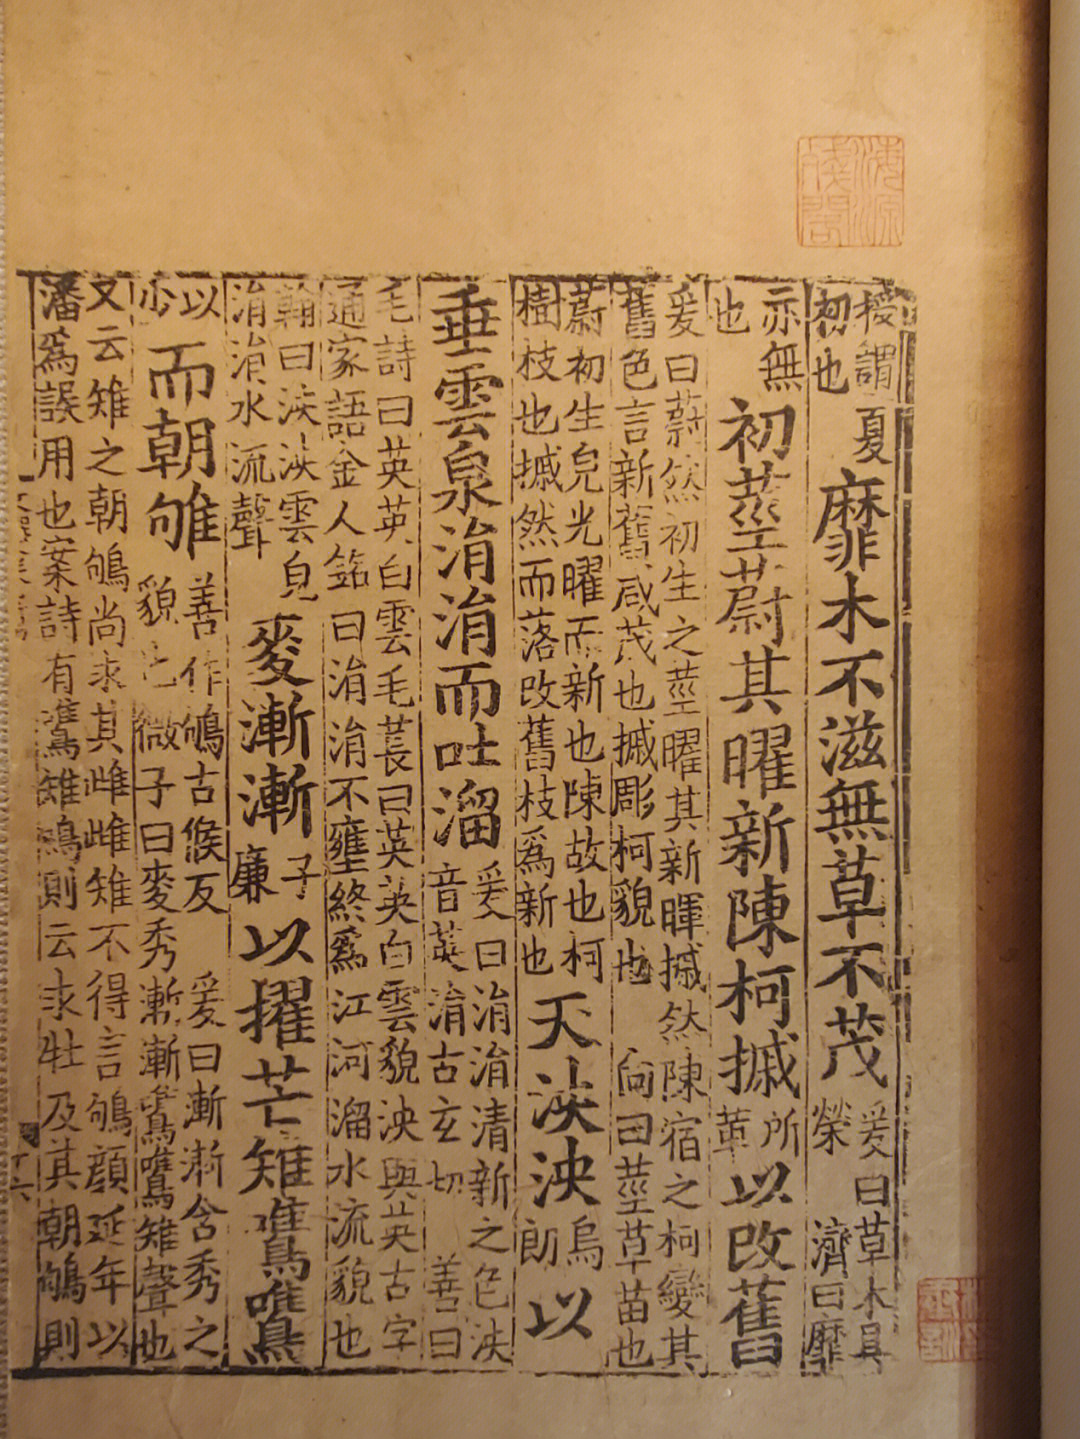 海源殘閣
授謂夏初也靡木不滋無草不茂爰曰草木具榮濟曰靡
亦無也初莖蔚其曜新陳柯槭所革以改舊
爰曰蔚然初生之莖曜其新暉槭然陳宿之柯變其
舊色言新舊咸茂也槭彫柯貌也向曰莖草苗也
蔚初生皃光曜而新也陳故也柯
樹枝也槭然而落改舊枝爲新也天泱泱烏朗以
垂雲泉涓涓而吐溜爰曰涓涓清新之色泱音英涓古玄切善曰
毛詩曰英英白雲毛萇曰英英白雲貌泱與英古字
通家語金人銘曰涓涓不壅終爲江河溜水流貌也
翰曰泱泱雲皃涓涓水流聲麥漸漸子廉以擢芒雉鷕鷕
以少而朝雊善作鴝古候反爰曰漸漸含秀之
貌也微子曰麥秀漸漸鷕鷕雉聲也
又云雉之朝鴝尚求其雌雌雉不得言鴝顔延年以
潘爲誤用也案詩有鷕雉鳴則云求牡及其朝鴝則